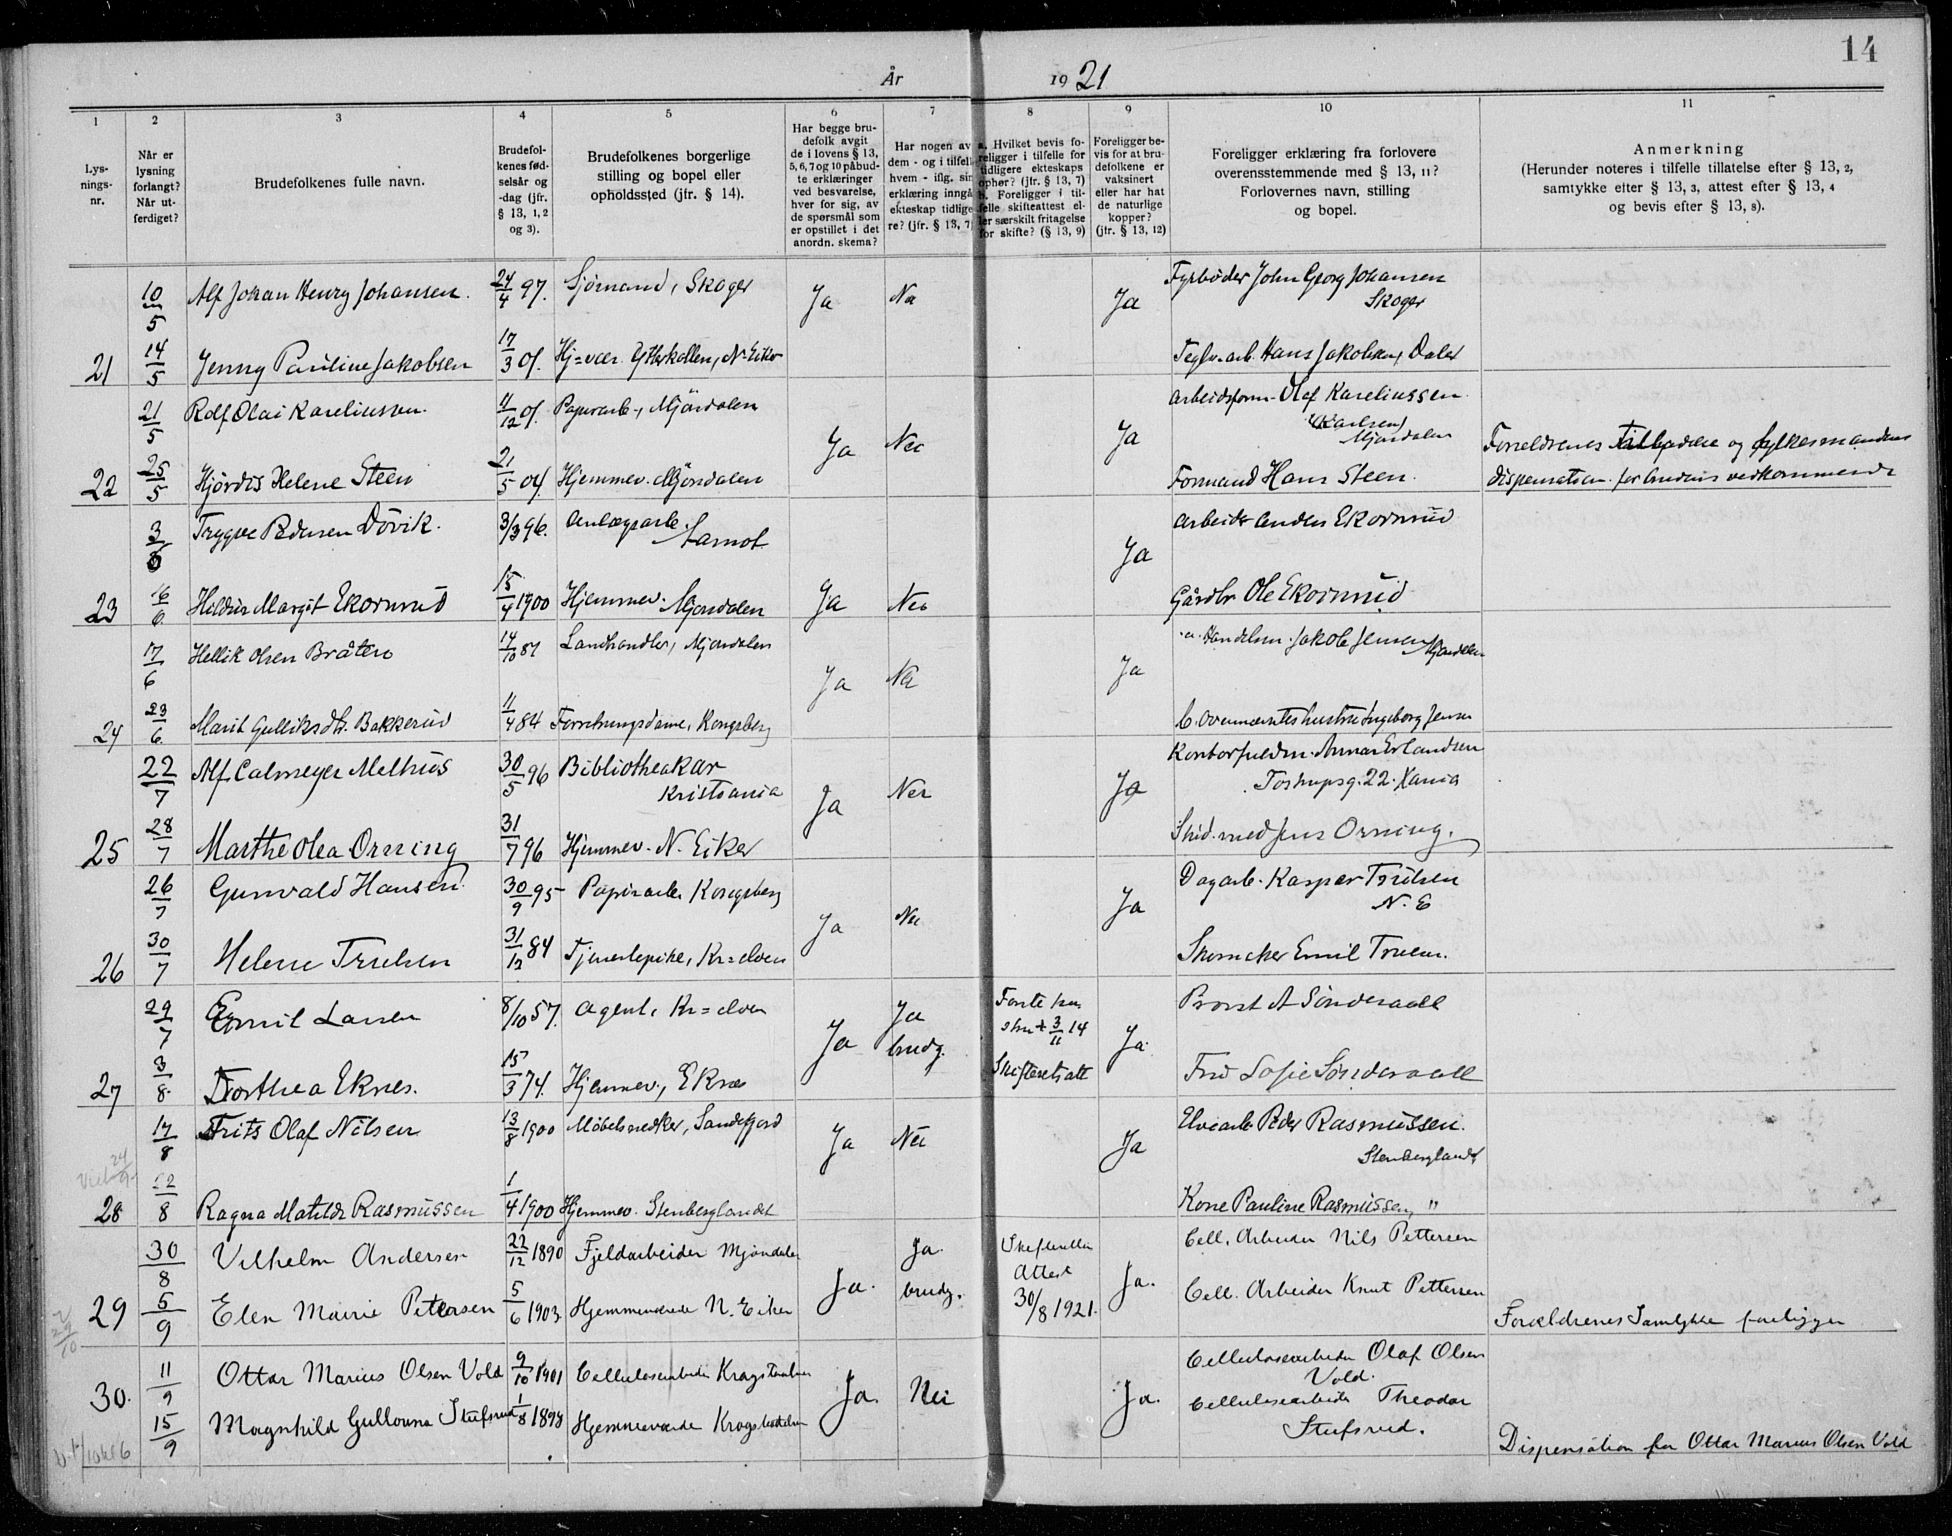 14
År 1921
1 2 3 4 5 6 7 8 9 10 11
Lys-
nings-
nr.
Når er
lysning
forlangt?
Når ut-
ferdiget?
Brudefolkenes fulle navn.
Brudefol-
kenes fød-
selsår og
-dag (jfr.
§ 13, 1, 2
og 3).
Brudefolkenes borgerlige
stilling og bopel eller
opholdssted (jfr. § 14).
Har begge bru-
defolk avgit
de i lovens § 13,
5, 6, 7 og 10 påbud-
te erklæringer
ved besvarelse,
hver for sig, av
de spørsmål som
er opstillet i det
anordn. skema?
Har nogen av
dem - og i tilfelle
hvem - iflg. sin
erklæring inngå
ekteskap tidlige
re? (jfr. § 13, 7)
a. Hvilket bevis fo-
religger i tilfelle for
tidligere ekteskaps
ophør? (jfr. § 13, 7)
b. Foreligger i til-
felle skifteattest el-
ler særskilt fritagelse
for skifte? (§ 13, 9)
Foreligger be-
vis for at bru-
defolkene er
vaksinert
eller har hat
de naturlige
kopper?
(jfr. § 13, 12)
Foreligger erklæring fra forlovere
overensstemmende med § 13, 11?
Forlovernes navn, stilling
og bopel.
Anmerkning
(Herunder noteres i tilfelle tillatelse efter § 13, 2,
samtykke efter § 13, 3, attest efter § 13, 4
og bevis efter § 13, 8).
10/5 Alf Johan Henry Johansen. 24/4 97. Sjømand, Skoger Ja Nei Ja Fyrbøder John Georg Johansen
Skoger
21 14/5 Jenny Pauline Jakobsen 17/3 01. Hj=vær. Ytterkollen, N. Eiker Teglv.arb. Hans Jakobsen, Daler
21/5 Rolf Olai Kareliussen. 11/12 01. Papirarb., Mjöndalen Ja Nei Ja Arbeidsform. Olaf Kareliussen
(Karlsen)
Mjöndalen
22 25/5 Hjørdis Helene Steen 21/5 04. Hjemmev. Mjöndalen Formand Hans Steen. Forældrenes tilladelse og fylkesmandens
dispensation for brudens vedkommende
3/6 Trygve Pedersen Dövik. 3/3 96. Anlægsarb. Åamot Ja Arbeider Anders Ekornrud
23 16/6 Hildur Margit Ekornrud 15/4 1900 Hjemmev. Mjöndalen Ja Nei Gårdbr Ole Ekornrud
17/6 Hellik Olsen Bråten 14/10 87 Landhandler, Mjöndalen Ja Nei Ja a. Handelsm. Jakob Jensen Mjöndalen
24 23/6 Marit Gulliksdtr. Bakkerud 11/4 84 Forretningsdame, Kongsberg b. Ovennævntes hustru Ingeborg Jensen
22/7 Alf Calmeyer Melhus 30/5 96 Bibliothekar
Kristiania Ja Nei Ja Kontorfuldm. Annar Erlandsen
Tostrupsg. 22. Kania
25 28/7 Marthe Olea Orning 31/7 96 Hjemmev. N. Eiker Smed Jens Orning.
26/7 Gunvald Hansen 30/9 95 Papirarb. Kongsberg Ja Nei Ja Dagarb. Kasper Trulsen
N. E
26 30/7 Helene Trulsen 31/12 84 Tjenestepike, Kr=elven Skomaker Emil Trulsen.
29/7 Emil Larsen 8/10 57. Agent, Kr=elven Ja Ja
brudg. Første hu
stru + 3/11 14
Skifteretsatt Ja Provst A Sönderaall
27 3/8 Dorthea Eknes. 15/3 74. Hjemmev., Eknes Fru Sofie Sønderaall
17/8 Frits Olaf Nilsen 13/8 1900 Møbelsnedker, Sandefjord Ja Nei Ja Elvearb. Peder Rasmussen.
Stenberglandet
24/9
28 22/8 Ragna Matilde Rasmussen 1/4 1900 Hjemmev. Stenberglandet Kone Pauline Rasmussen, "
30/8 Vilhelm Andersen 22/12 1890 Fjeldarbeider Mjøndalen Ja. Ja.
brudg. Skifteretten
Attest
30/8 1921. Ja. Cell. Arbeider Nils Pettersen
29 5/9 Elen Marie Pettersen 5/6 1903 Hjemmeværende N. Eiker Cell. Arbeider Knut Pettersen
Forældrenes Samtykke foreligger
29/10
30. 11/9 Ottar Marius Olsen Vold 9/10 1901 Cellulosearbeider Krogstadelven Ja. Nei Ja. Cellulosearbeider Olaf Olsen
Vold.
15/9 Magnhild Gullouna Stufsrud 1/8 1898 Hjemmeværende Krogstadelven Cellulosearbeider Theodor
Stufsrud.
Dispensation for Ottar Marius Olsen Vold